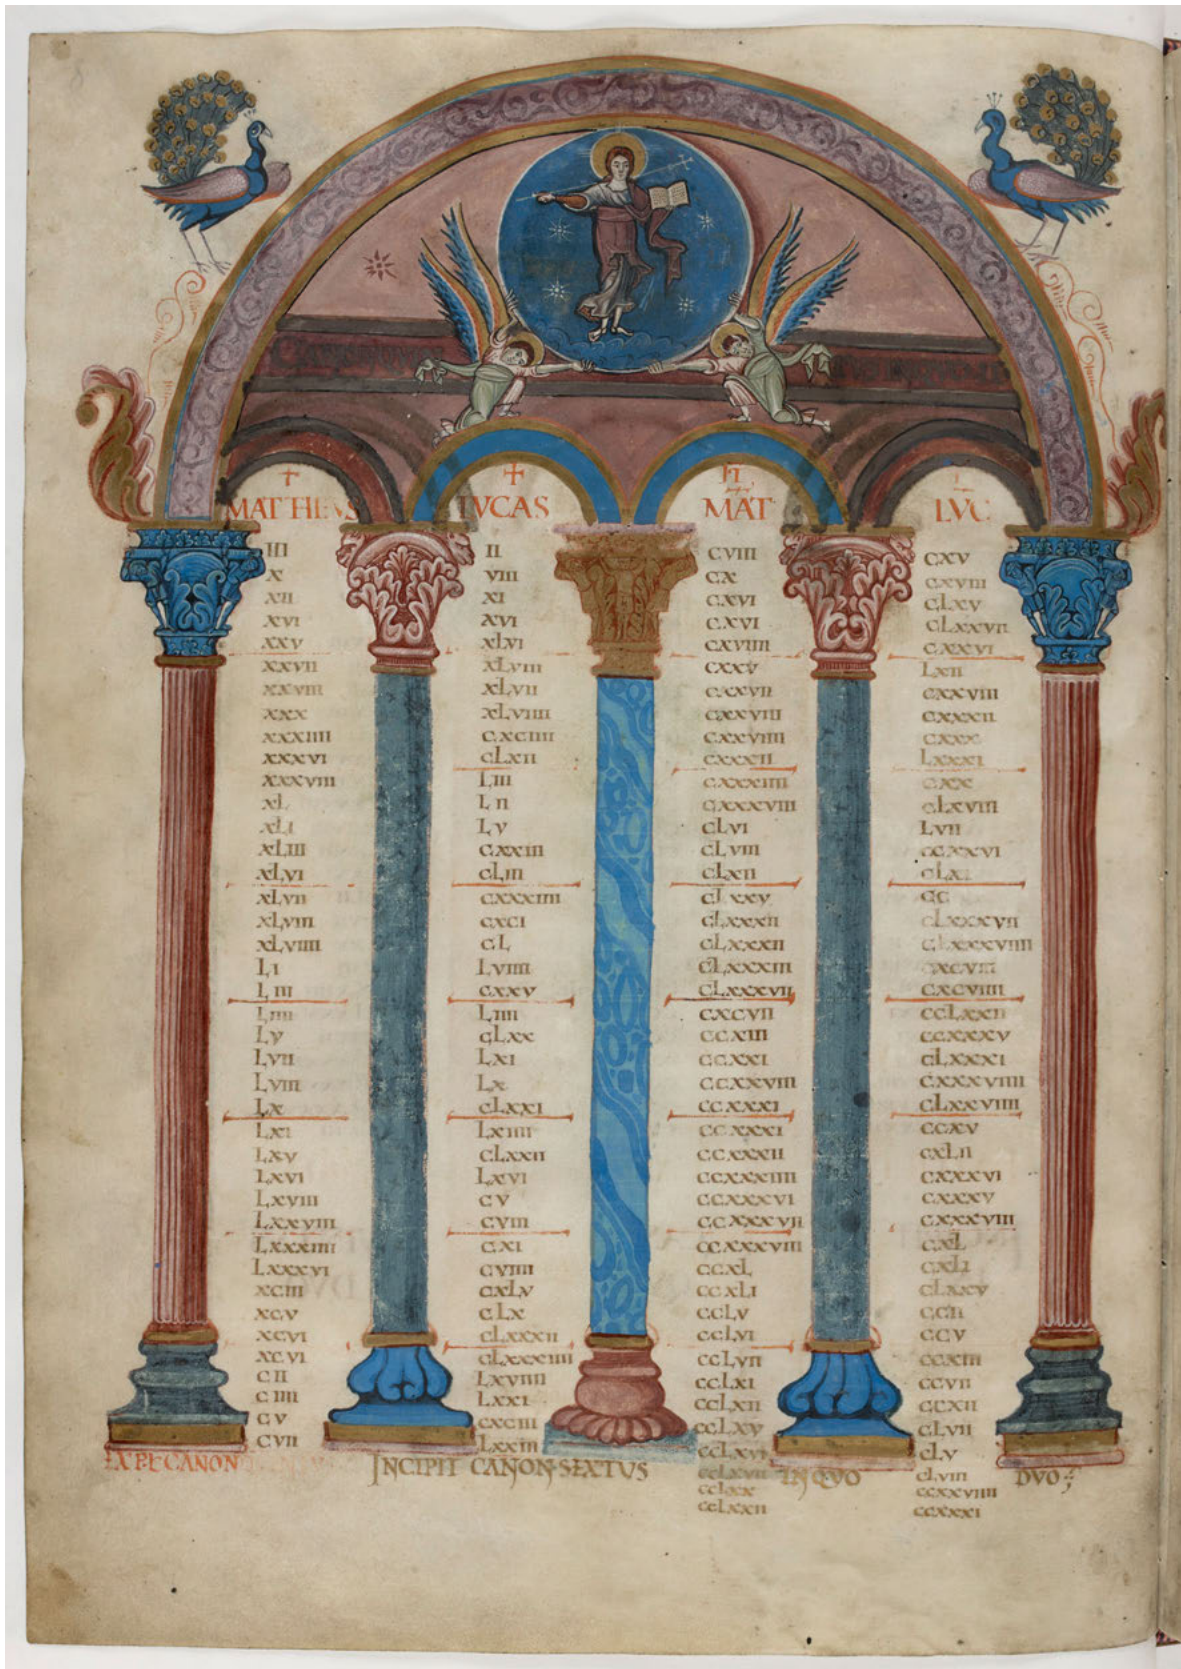 MATTHEVS
III
X
XII
XVI
XXV
XXVII
XXVIII
XXX
XXXIIII
XXXVI
XXXVIII
XL
XLI
XLIII
XLVI
XLVII
XLVIII
XLVIIII
LI
LIII
LIIII
LV
LVII
LVIII
LX
LXI
LXV
LXVI
LXVIII
LXXVIII
LXXXIIII
LXXXVI
XCIII
XCV
XCVI
XCVI
CII
CIIII
CV
CVII
LVCAS
II
VIII
XI
XVI
XLVI
XLVIII
XLVII
XLVIIII
CXCIIII
CLXII
LIII
LII
LV
CXXIII
CLIII
CXXXIIII
CXCI
CL
LVIIII
CXXV
LIIII
CLXX
LXI
LX
CLXXI
LXIIII
CLXXII
LXVI
CV
CVIII
CXI
CVIIII
CXLV
CLX
CLXXXII
CLXXXIIII
LXVIIII
LXXI
CXCIII
LXXIII
MAT
CVIII
CX
CXVI
CXVI
CXVIIII
CXXV
CXXVII
CXXVIII
CXXVIIII
CXXXII
CXXXIIII
CXXXVIII
CLVI
CLVIII
CLXII
CLXXV
CLXXXII
CLXXXII
CLXXXIII
CLXXXVII
CXCVII
CCXIII
CCXXI
CCXXVIII
CCXXXI
CCXXXI
CCXXXII
CCXXXIIII
CCXXXVI
CCXXXVII
CCXXXVIII
CCXL
CCXLI
CCLV
CCLVI
CCLVII
CCLXI
CCLXII
CCLXV
CCLXVI
CCLXVII
CCLXX
CCLXXII
LVC
CXV
CXVIII
CLXV
CLXXVII
CXXVI
LXII
CXXVIII
CXXXII
CXXX
LXXXI
CXX
CLXVIII
LVII
CCXXVI
CLXI
CC
CLXXXVII
CLXXXVIIII
CXCVIII
CXCVIIII
CCLXXII
CCXXXV
CLXXXI
CXXXVIIII
CLXXVIIII
CCXV
CXLII
CXXXVI
CXXXV
CXXXVIII
CXL
CXLI
CLXXV
CCII
CCV
CCXIII
CCVII
CCXII
CLVII
CLV
CLVIII
CCXXVIIII
CCXXXI
EXPL CANON
INCIPIT CANON SEXTUS IN QUO DVO